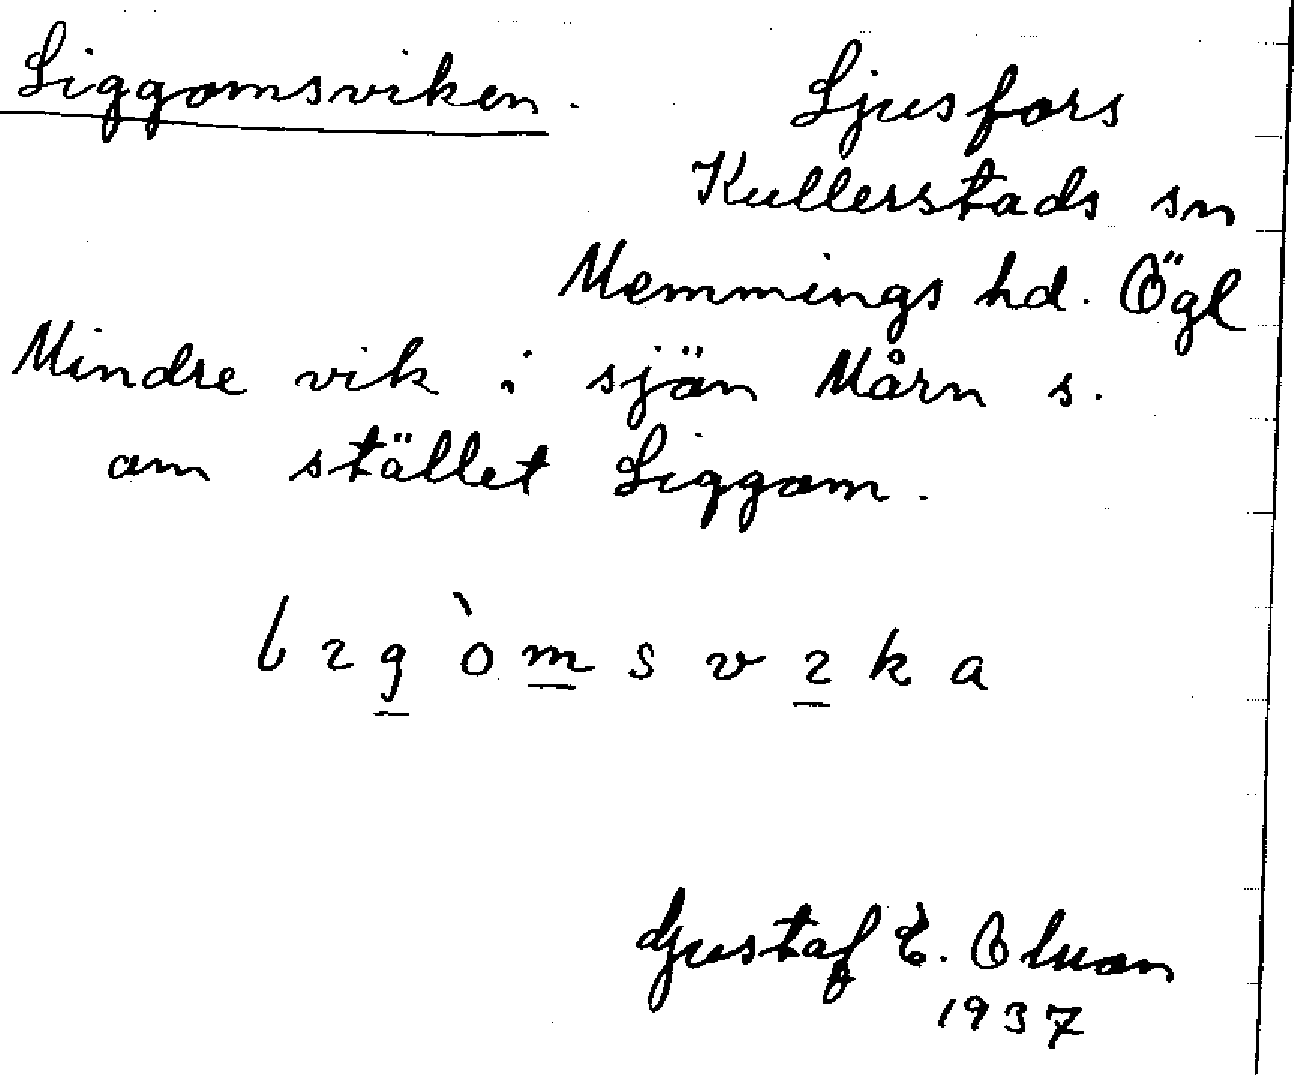 Liggomsviken.
Ljusfors
Kullerstads sn
Memmings hd. Ögl
Mindre vik i sjön Mårn s.
om stället Liggom.
lıgòmsvıka
Gustaf E.
1937